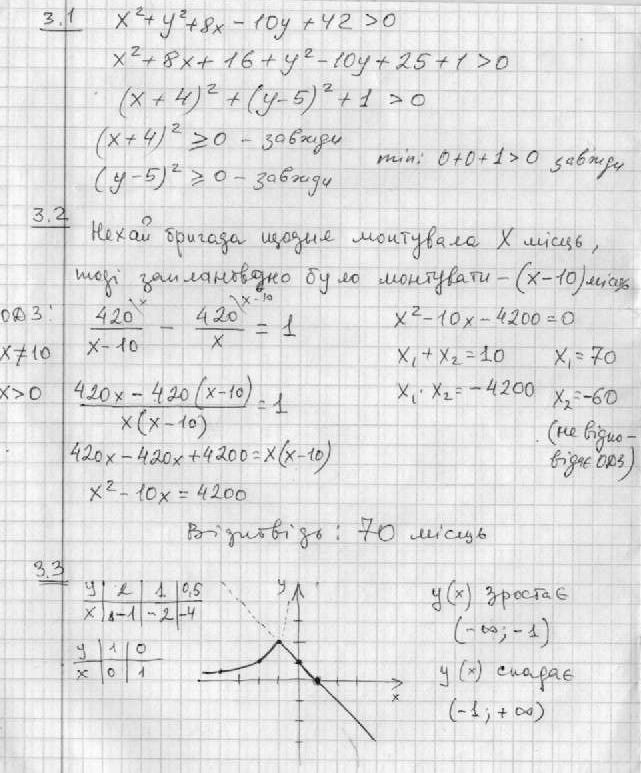 3.1 x² + y² + 8x - 10y + 42 > 0
x² + 8x + 16 + y² - 10y + 25 + 1 > 0
(x + 4)² + (y - 5)² + 1 > 0
(x + 4)² ≥ 0 - завжди
(y - 5)² ≥ 0 - завжди
min: 0 + 0 + 1 > 0 завжди
3.2 Нехай бригада щодня монтувала X місць,
тоді заплановано було монтувати - (x - 10) місць
ОДЗ:
x ≠ 10
x > 0
420\x / (x - 10) - 420\x-10 / x = 1
(420x - 420(x - 10)) / (x(x - 10)) = 1
420x - 420x + 4200 = x(x - 10)
x² - 10x = 4200
x² - 10x - 4200 = 0
x₁ + x₂ = 10
x₁ · x₂ = -4200
x₁ = 70
x₂ = -60
(не відпо-
відає ОДЗ)
Відповідь: 70 місць
3.3
y | 2 | 1 | 0,5
x | -1 | -2 | -4
y | 1 | 0
x | 0 | 1
y
x
y(x) зростає
(-∞; -1)
y(x) спадає
(-1; +∞)